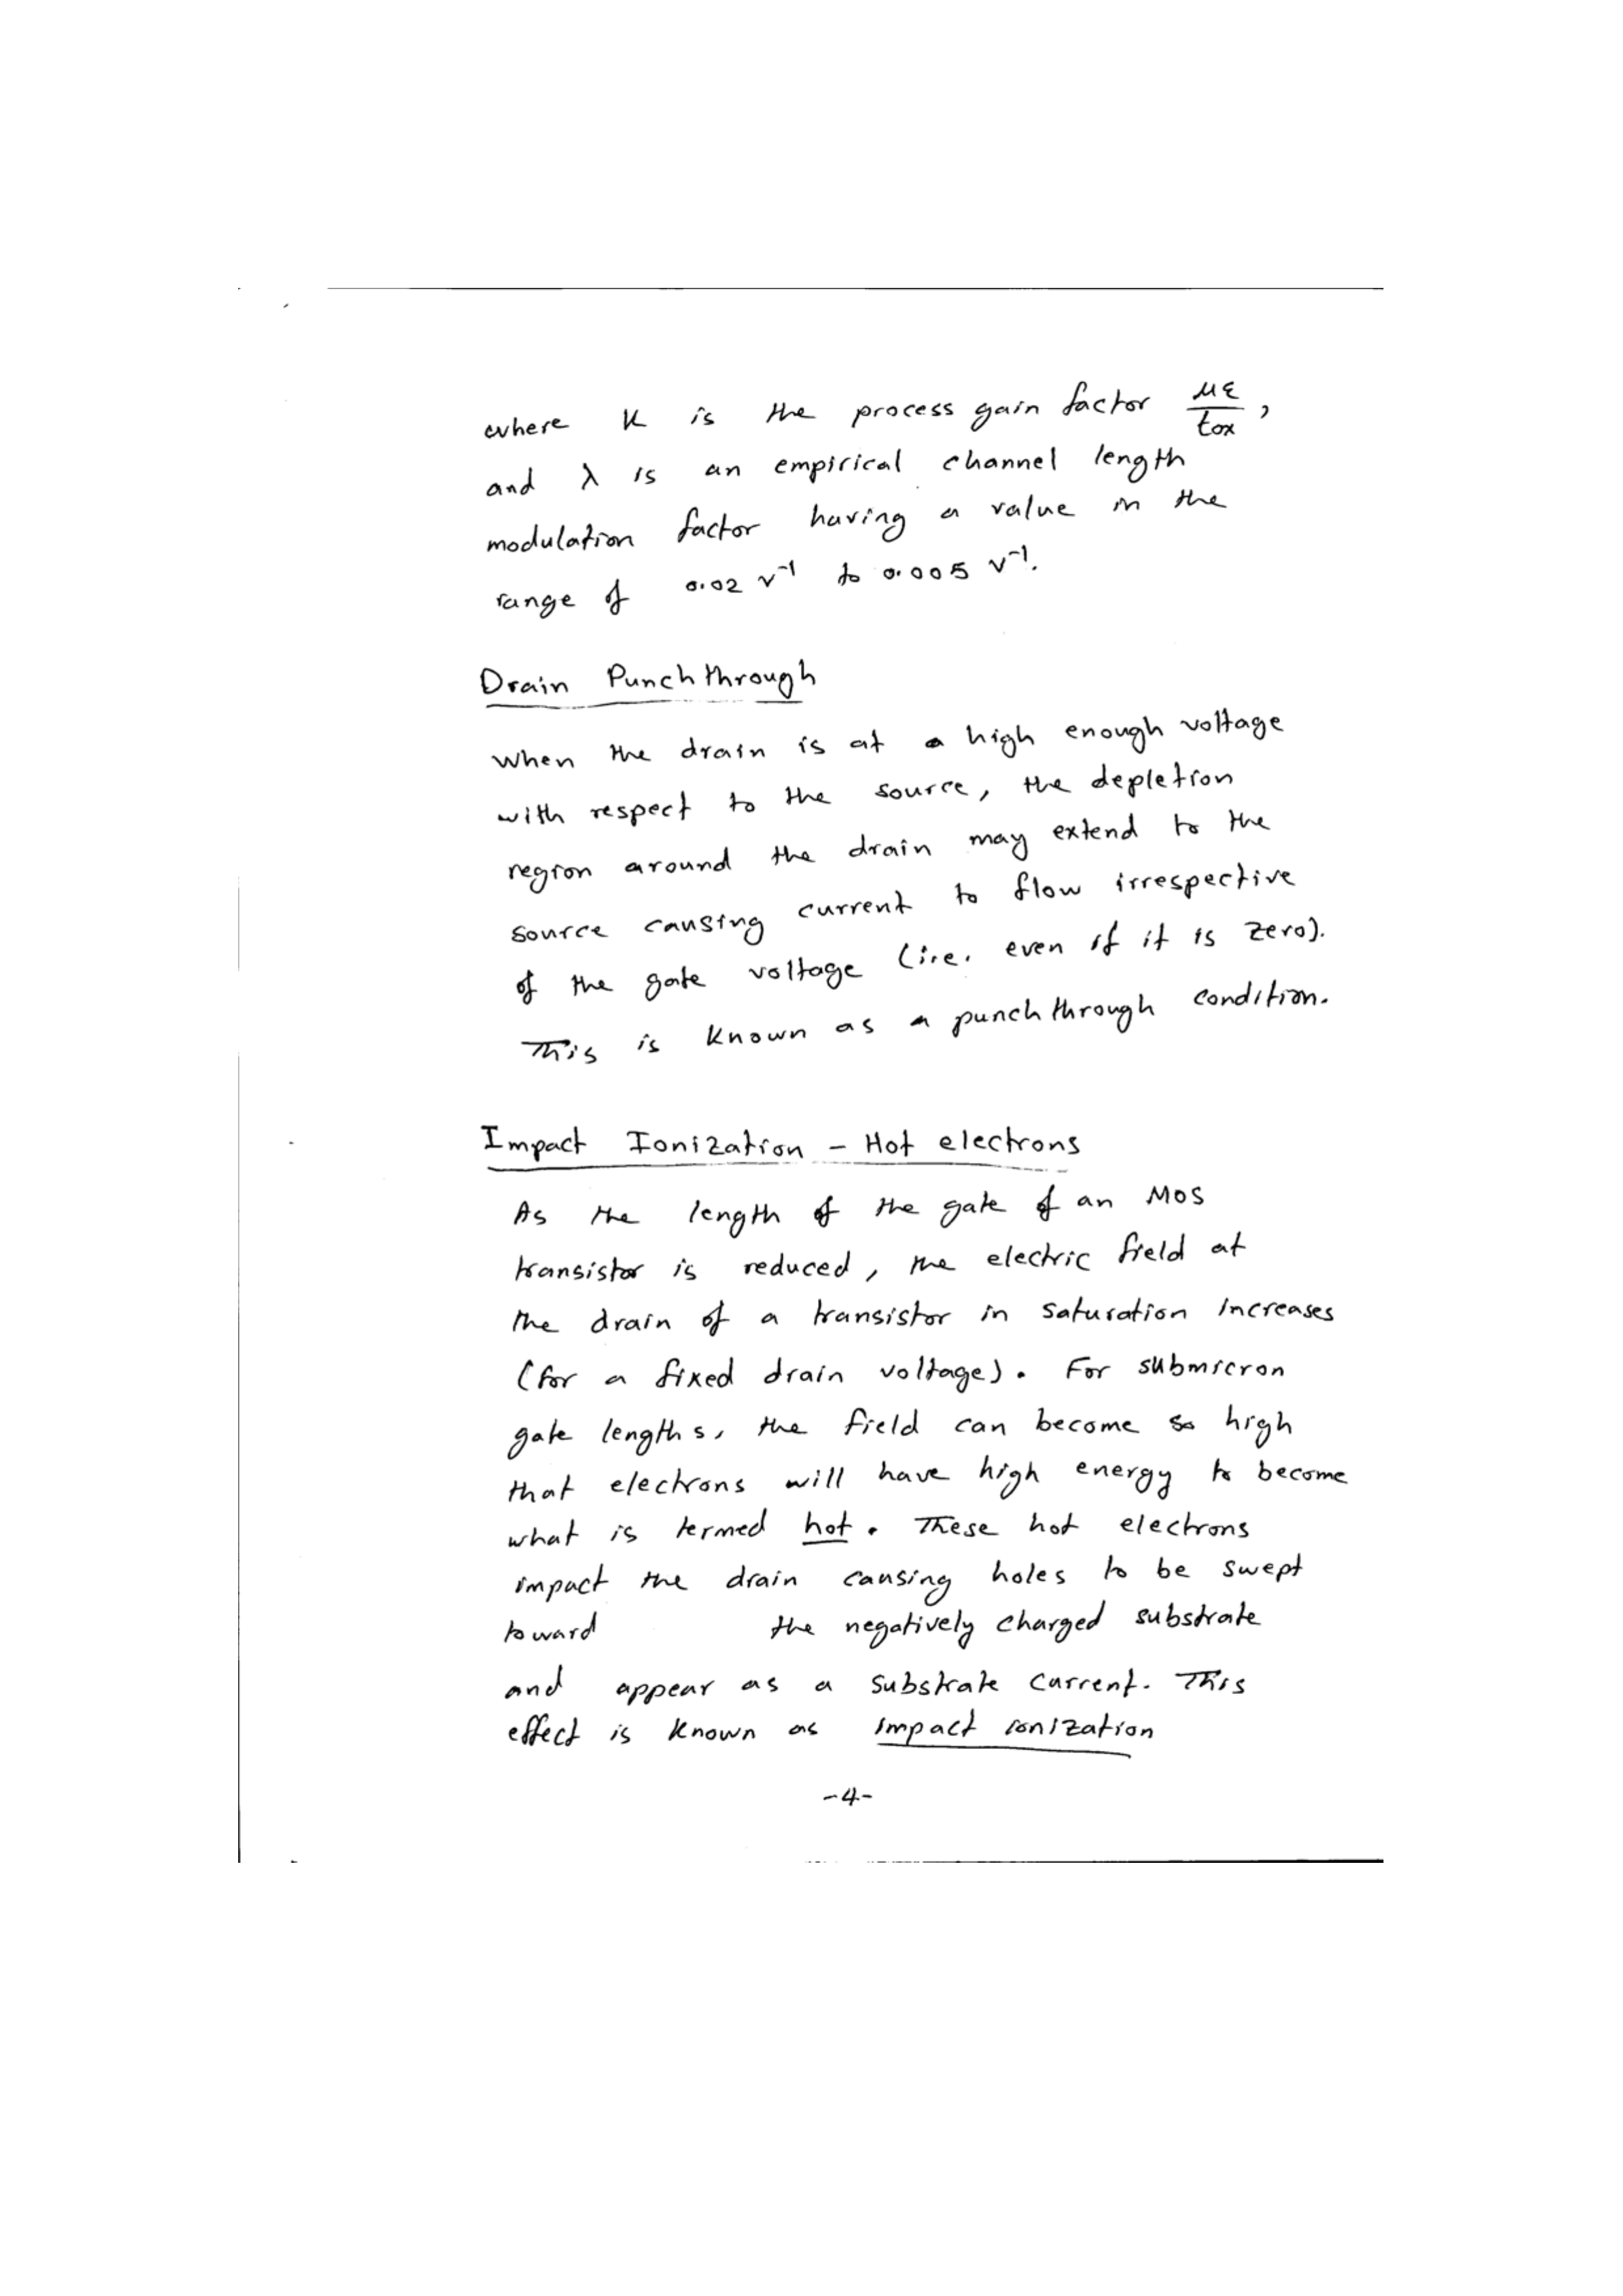 where K is the process gain factor με/tox,
and λ is an empirical channel length
modulation factor having a value in the
range of 0.02 V⁻¹ to 0.005 V⁻¹.
Drain Punchthrough
When the drain is at a high enough voltage
with respect to the source, the depletion
region around the drain may extend to the
source causing current to flow irrespective
of the gate voltage (i.e. even if it is zero).
This is known as a punchthrough condition.
Impact Ionization – Hot electrons
As the length of the gate of an MOS
transistor is reduced, the electric field at
the drain of a transistor in saturation increases
(for a fixed drain voltage). For submicron
gate lengths, the field can become so high
that electrons will have high energy to become
what is termed hot. These hot electrons
impact the drain causing holes to be swept
toward the negatively charged substrate
and appear as a substrate current. This
effect is known as impact ionization
-4-